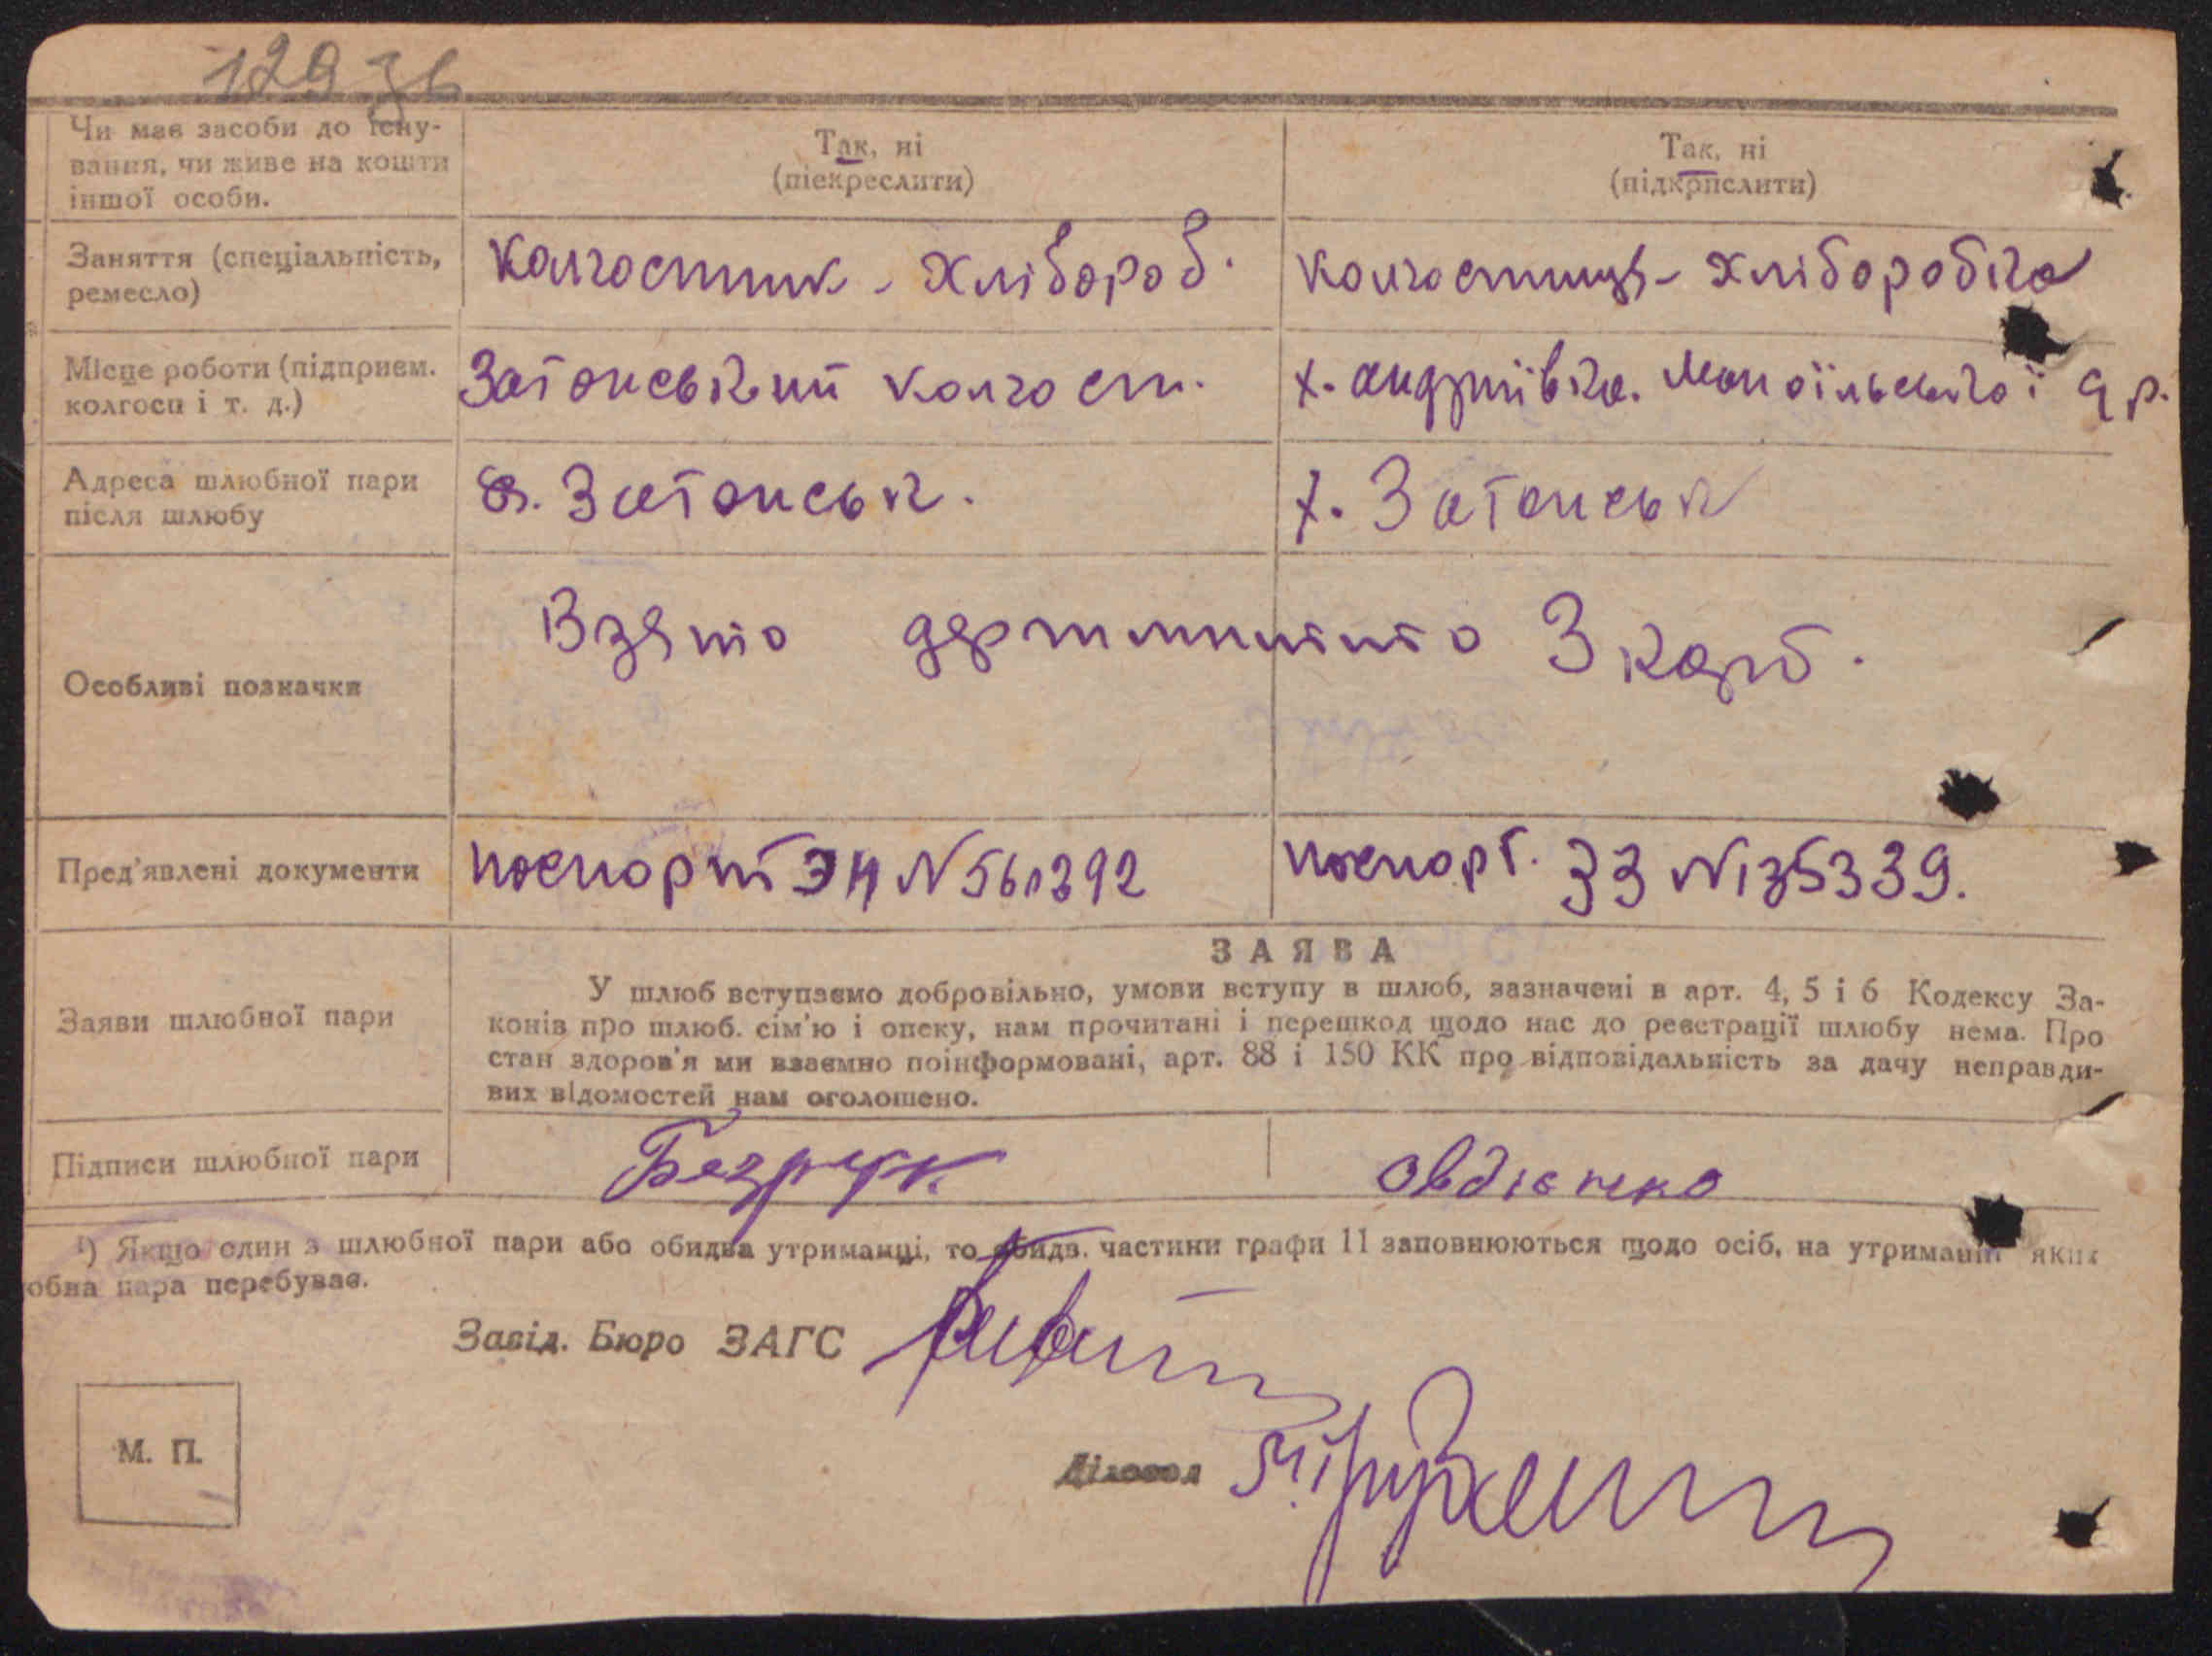 129 зв
Чи має засоби до існу-
вання, чи живе на кошти
іншої особи.
Так, ні
(піекреслити)
Так, ні
(підкрпслити)
Заняття (спеціальність,
ремесло)
Колгоспник - Хлібороб.
Колгоспниця - Хліборобка
Місце роботи (підприєм.
колгосп і т. д.)
Затонський колгосп.
х. Андріївка. Мануїльської с/р.
Адреса шлюбної пари
після шлюбу
х. Затонськ.
х. Затонськ
Особливі позначки
Взято держмита 3 карб.
Пред'явлені документи
паспорт ЭН №561392
паспорт. ЗЗ №135339.
Заяви шлюбної пари
ЗАЯВА
У шлюб вступаємо добровільно, умови вступу в шлюб, зазначені в арт. 4, 5 і 6 Кодексу За-
конів про шлюб. сім'ю і опеку, нам прочитані і перешкод щодо нас до реєстрації шлюбу нема. Про
стан здоров'я ми взаємно поінформовані, арт. 88 і 150 КК про відповідальність за дачу неправди-
вих відомостей нам оголошено.
Підписи шлюбної пари
Безрук
Овдієнко
¹) Якщо один з шлюбної пари або обидва утриманці, то обидв. частини графи 11 заповнюються щодо осіб, на утриманні яких
обна пара перебуває.
Завід. Бюро ЗАГС
Діловод
М. П.